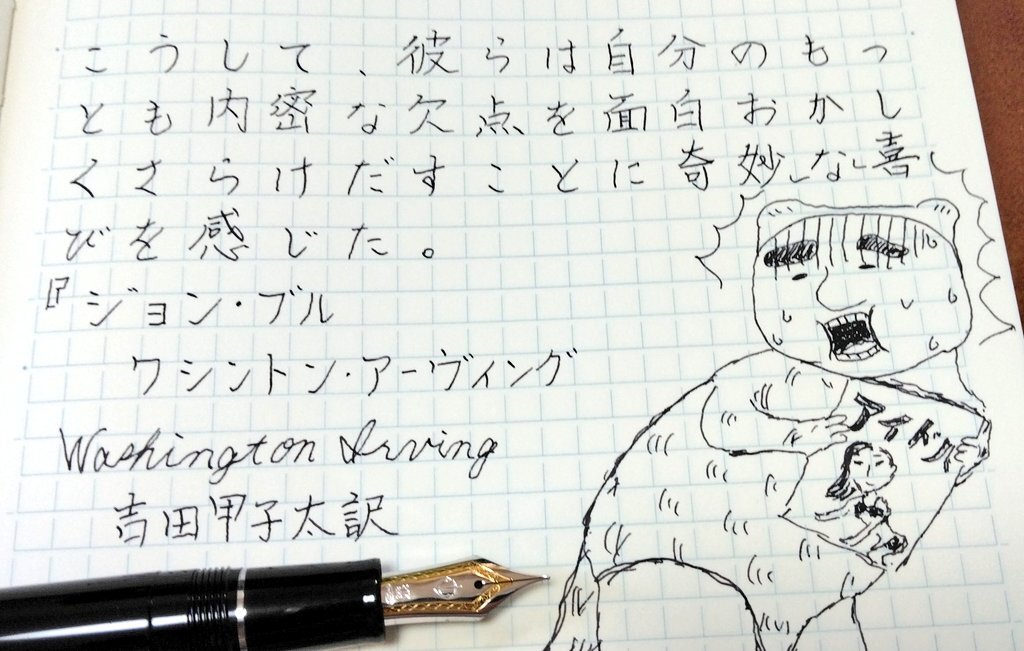 こうして、彼らは自分のもっ
とも内密な欠点を面白おかし
くさらけだすことに奇妙な喜
びを感じた。
『ジョン・ブル
ワシントン・アーヴィング
Washington Irving
吉田甲子太訳
アイドル